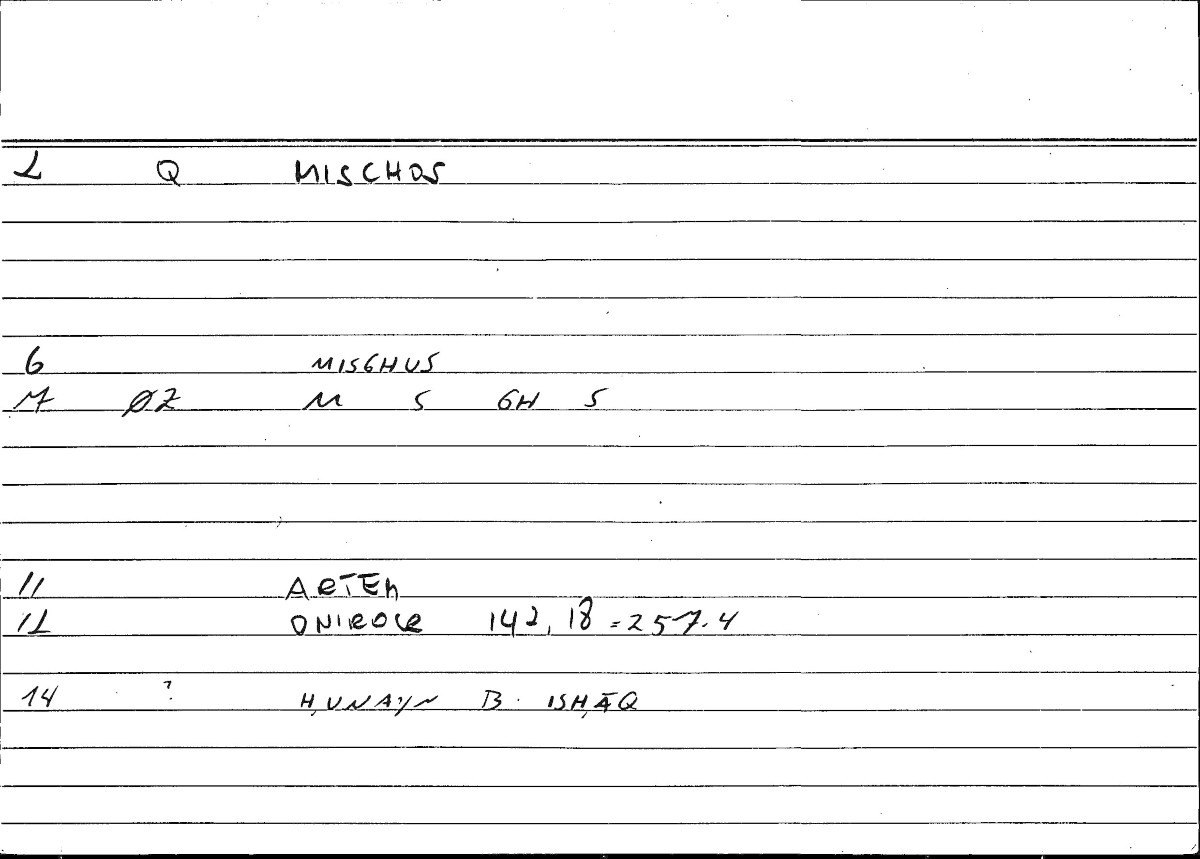 2 Q MISCHOS
6 MISGHUS
7 ØZ M S GH S
11 ARTEM
12 ONIROCR 142, 18 = 257.4
14 ? ḤUNAYN B. ISḤĀQ